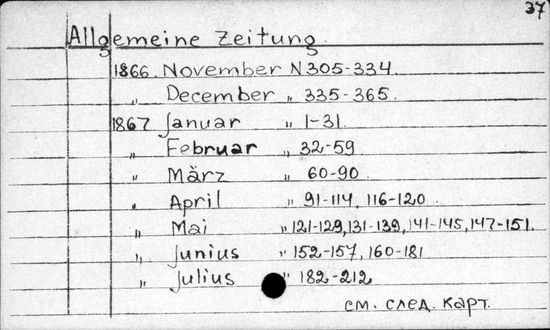 37
Allgemeine Zeitung.
1866. November N 305-334.
„ December „ 335-365.
1867 Januar „ 1-31.
„ Februar „ 32-59
„ März „ 60-90.
„ April „ 91-114, 116-120.
„ Mai „ 121-129, 131-139, 141-145, 147-151.
„ Junius „ 152-157, 160-181
„ Julius „ 182-212
см. след. карт.